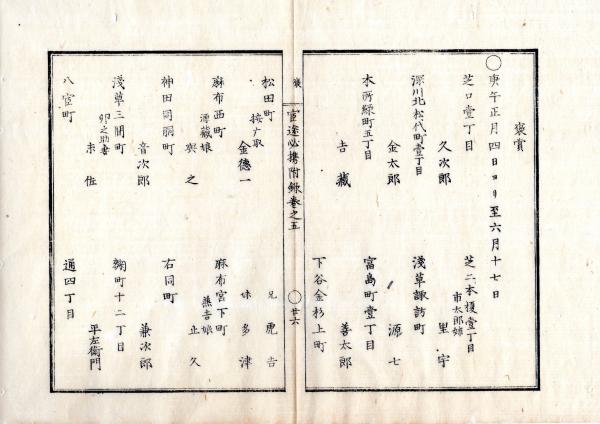 褒賞
○庚午正月四日ヨリ至六月十七日
芝口壹丁目
久次郎
芝二本榎壹丁目
市太郎姉
里宇
深川北松代町壹丁目
金太郎
淺草諏訪町
源七
本所緑町五丁目
吉藏
富島町壹丁目
善太郎
下谷金杉上町
褒
官途必携附録巻之五
○廿六
兄虎吉
妹多津
松田町
按广取
金徳一
麻布宮下町
燕吉娘
止久
麻布西町
源藏娘
與之
右同町
兼次郎
神田同朋町
音次郎
麹町十二丁目
平左衛門
淺草三間町
卯之助妻
末佐
通四丁目
八官町